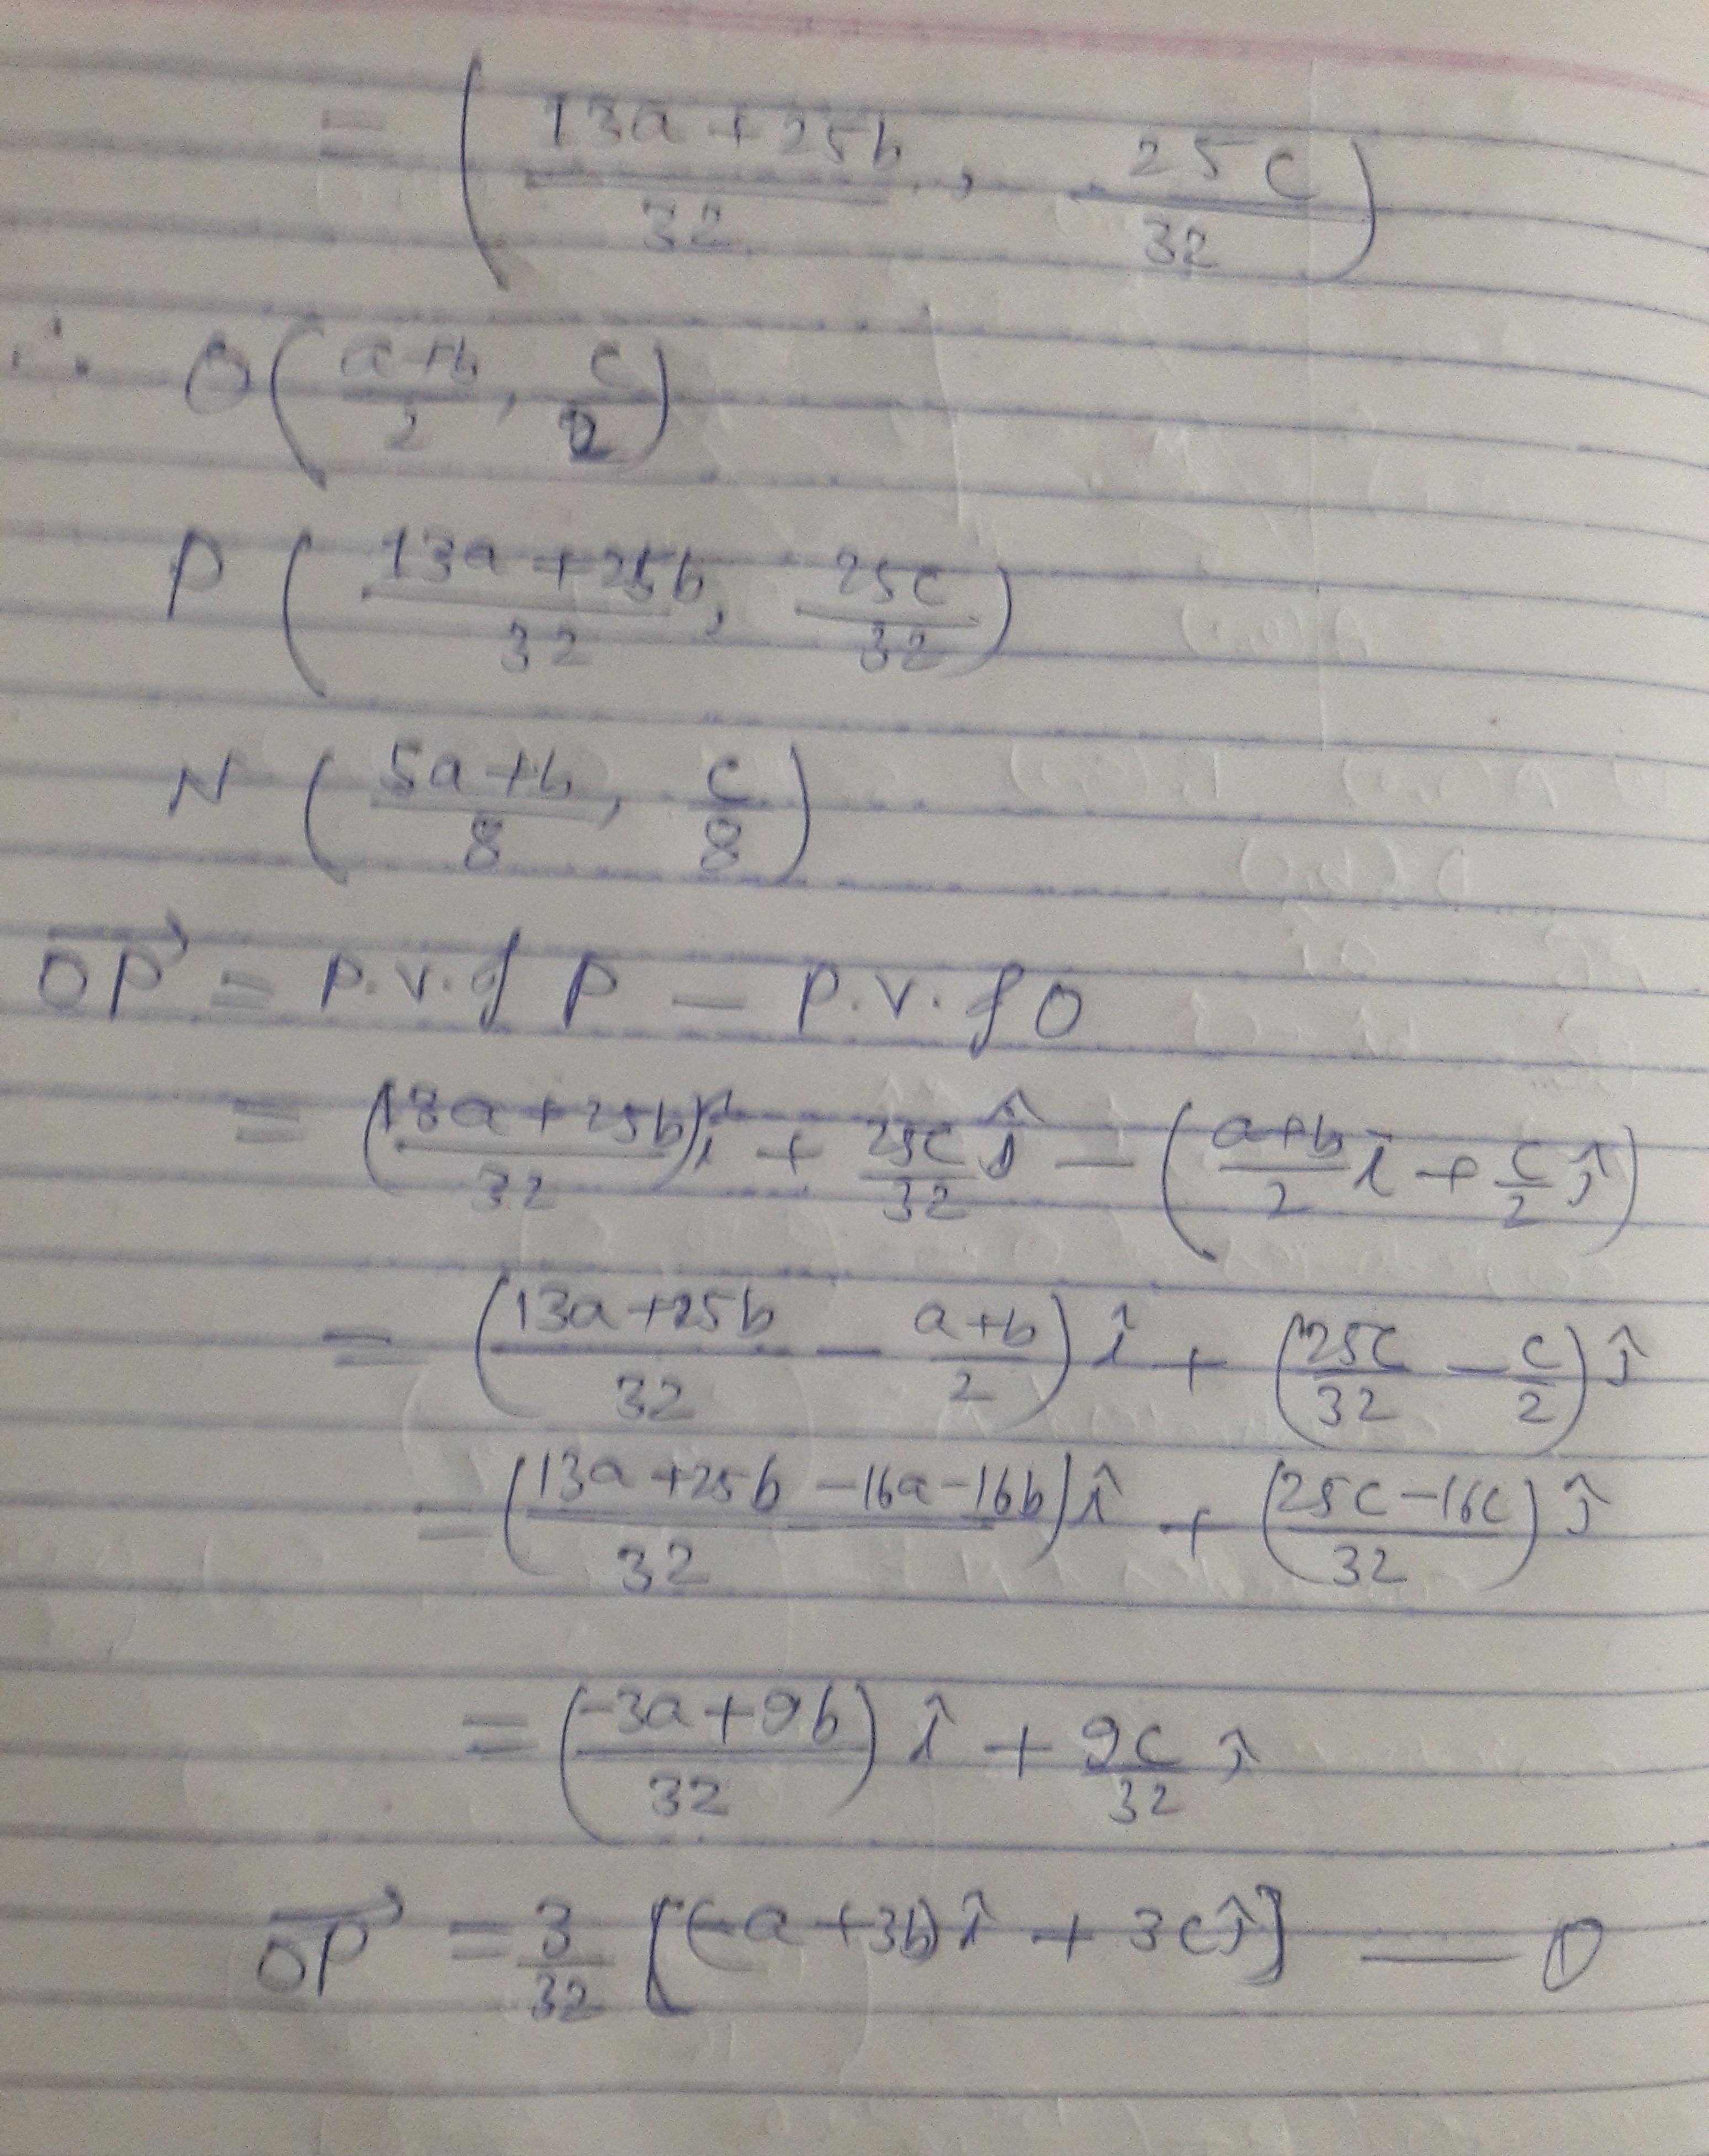 = ( (13a+25b)/32 , 25c/32 )
∴ O ( (a+b)/2 , c/2 )
P ( (13a+25b)/32 , 25c/32 )
N ( (5a+b)/8 , c/8 )
OP⃗ = P.V. of P − P.V. of O
= ((13a+25b)/32) î + (25c/32) ĵ − ( (a+b)/2 î + c/2 ĵ )
= ( (13a+25b)/32 − (a+b)/2 ) î + ( 25c/32 − c/2 ) ĵ
= ( (13a+25b−16a−16b)/32 ) î + ( (25c−16c)/32 ) ĵ
= ( (−3a+9b)/32 ) î + 9c/32 ĵ
OP⃗ = 3/32 [(−a+3b) î + 3c ĵ] — ①